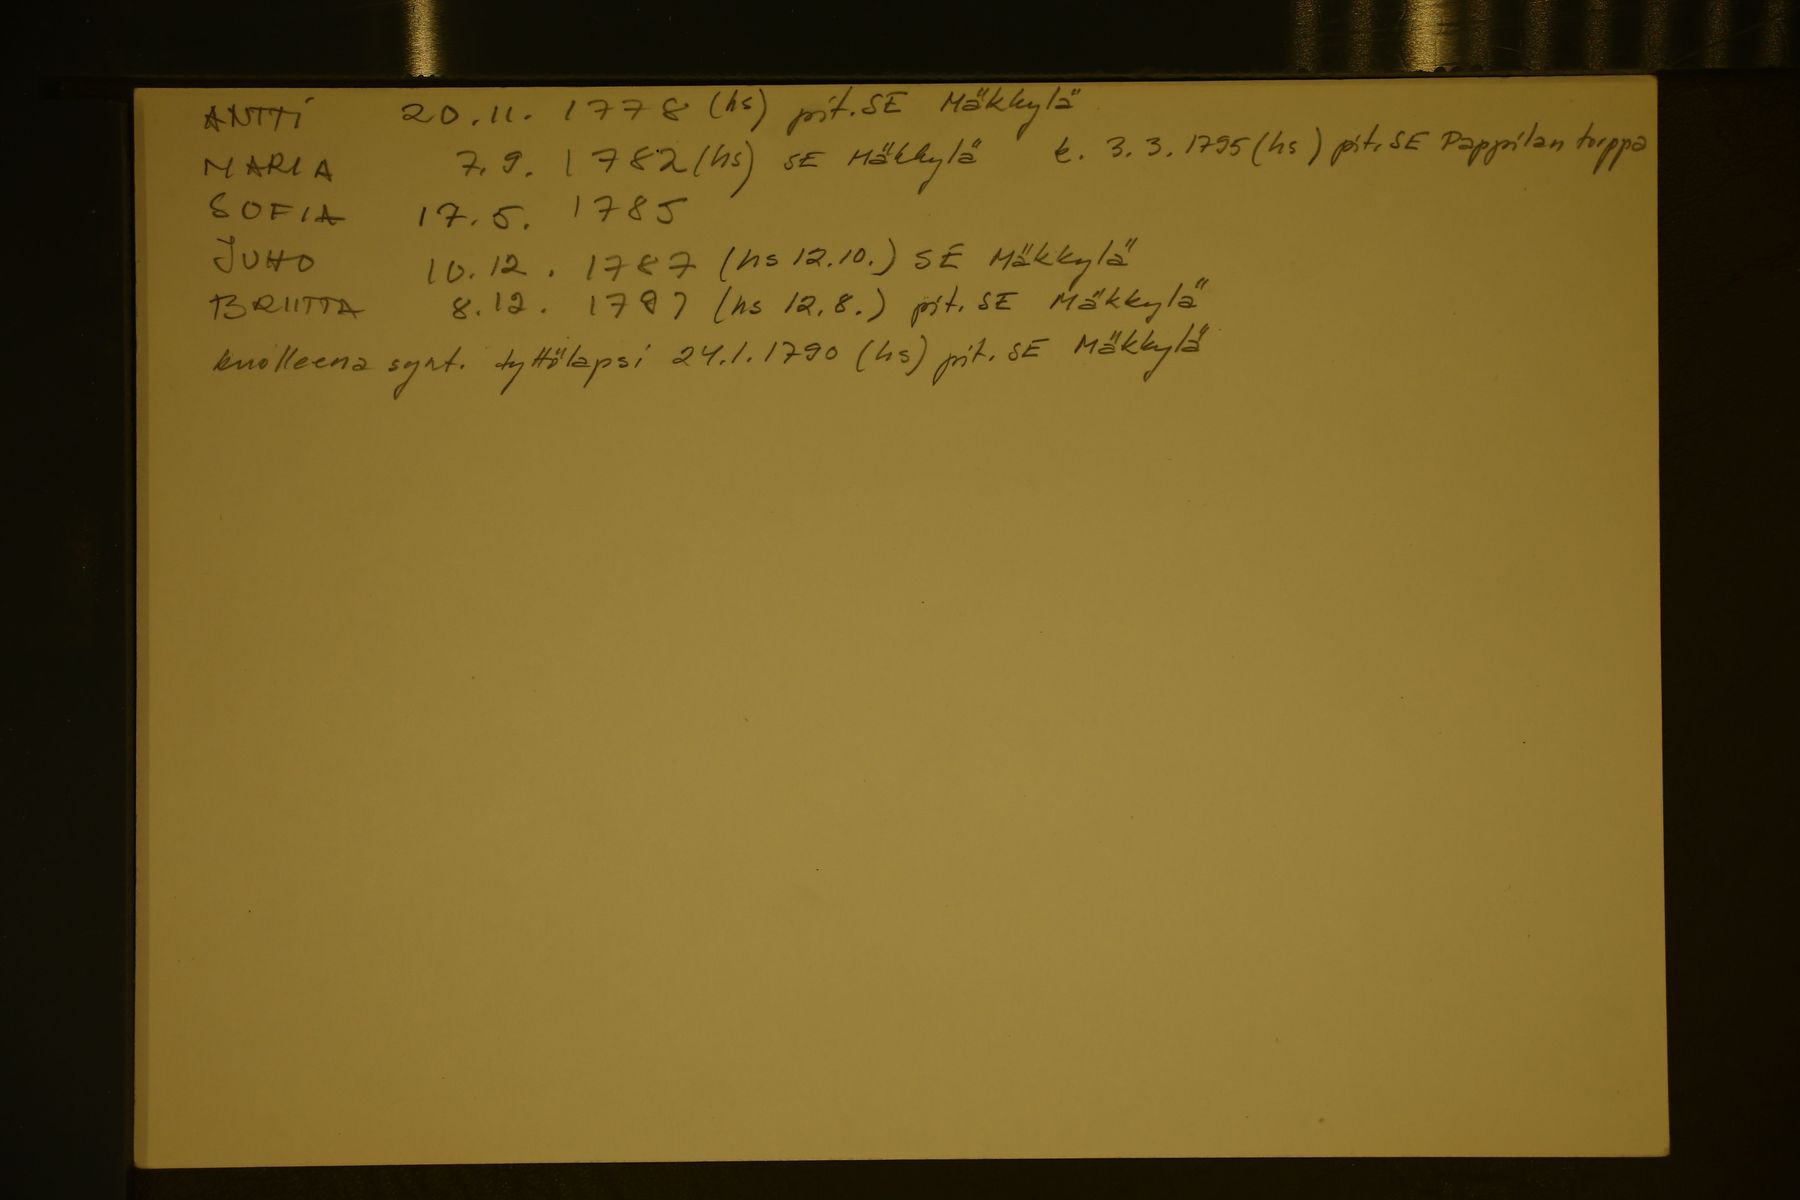 ANTTI 20.11. 1778 (hs) pit. SE Mäkkylä
MARIA 7.9. 1782 (hs) SE Mäkkylä k. 3.3.1795 (hs) pit. SE Pappilan torppa
SOFIA 17.5. 1785
JUHO 10.12. 1787 (hs 12.10.) SE Mäkkylä
BRIITTA 8.12. (hs 12.8.) pit. SE Mäkkylä
kuolleena synt. tyttölapsi 24.1.1790 (hs) pit. SE Mäkkylä